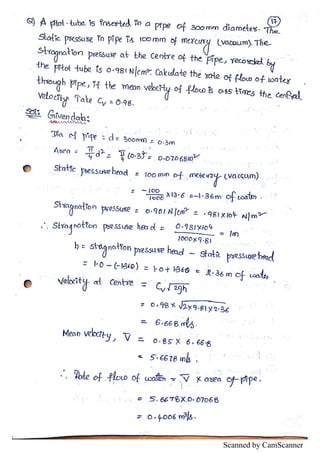 17
Q) A pitot-tube is inserted in a pipe of 300mm diameter. The
Static pressure in pipe is 100mm of mercury (vacuum). The
Stagnation pressure at the centre of the pipe, recorded by
the pitot tube is 0.981 N/cm². Calculate the rate of flow of water
through pipe, if the mean velocity of flow is 0.85 times the central
velocity. Take Cv = 0.98.
Sol: Given data:
Dia of pipe : d = 300mm = 0.3m
Area = π/4 d² = π/4 (0.3)² = 0.07068m²
Static pressure head = 100mm of mercury (vaccum)
= -100/1000 × 13.6 = -1.36m of water.
Stagnation pressure = 0.981 N/cm² = .981×10⁴ N/m²
∴ Stagnation pressure head = 0.981×10⁴/1000×9.81 = 1m
h = stagnation pressure head - static pressure head
= 1.0 - (-1.36) = 1.0 + 1.36 = 2.36m of water
Velocity at centre = Cv √2gh
= 0.98 × √2×9.81×2.36
= 6.668 m/s.
Mean velocity, V̅ = 0.85 × 6.668
= 5.6678 m/s.
∴ Rate of flow of water = V̅ × area of pipe.
= 5.6678×0.07068
= 0.4006 m³/s.
Scanned by CamScanner